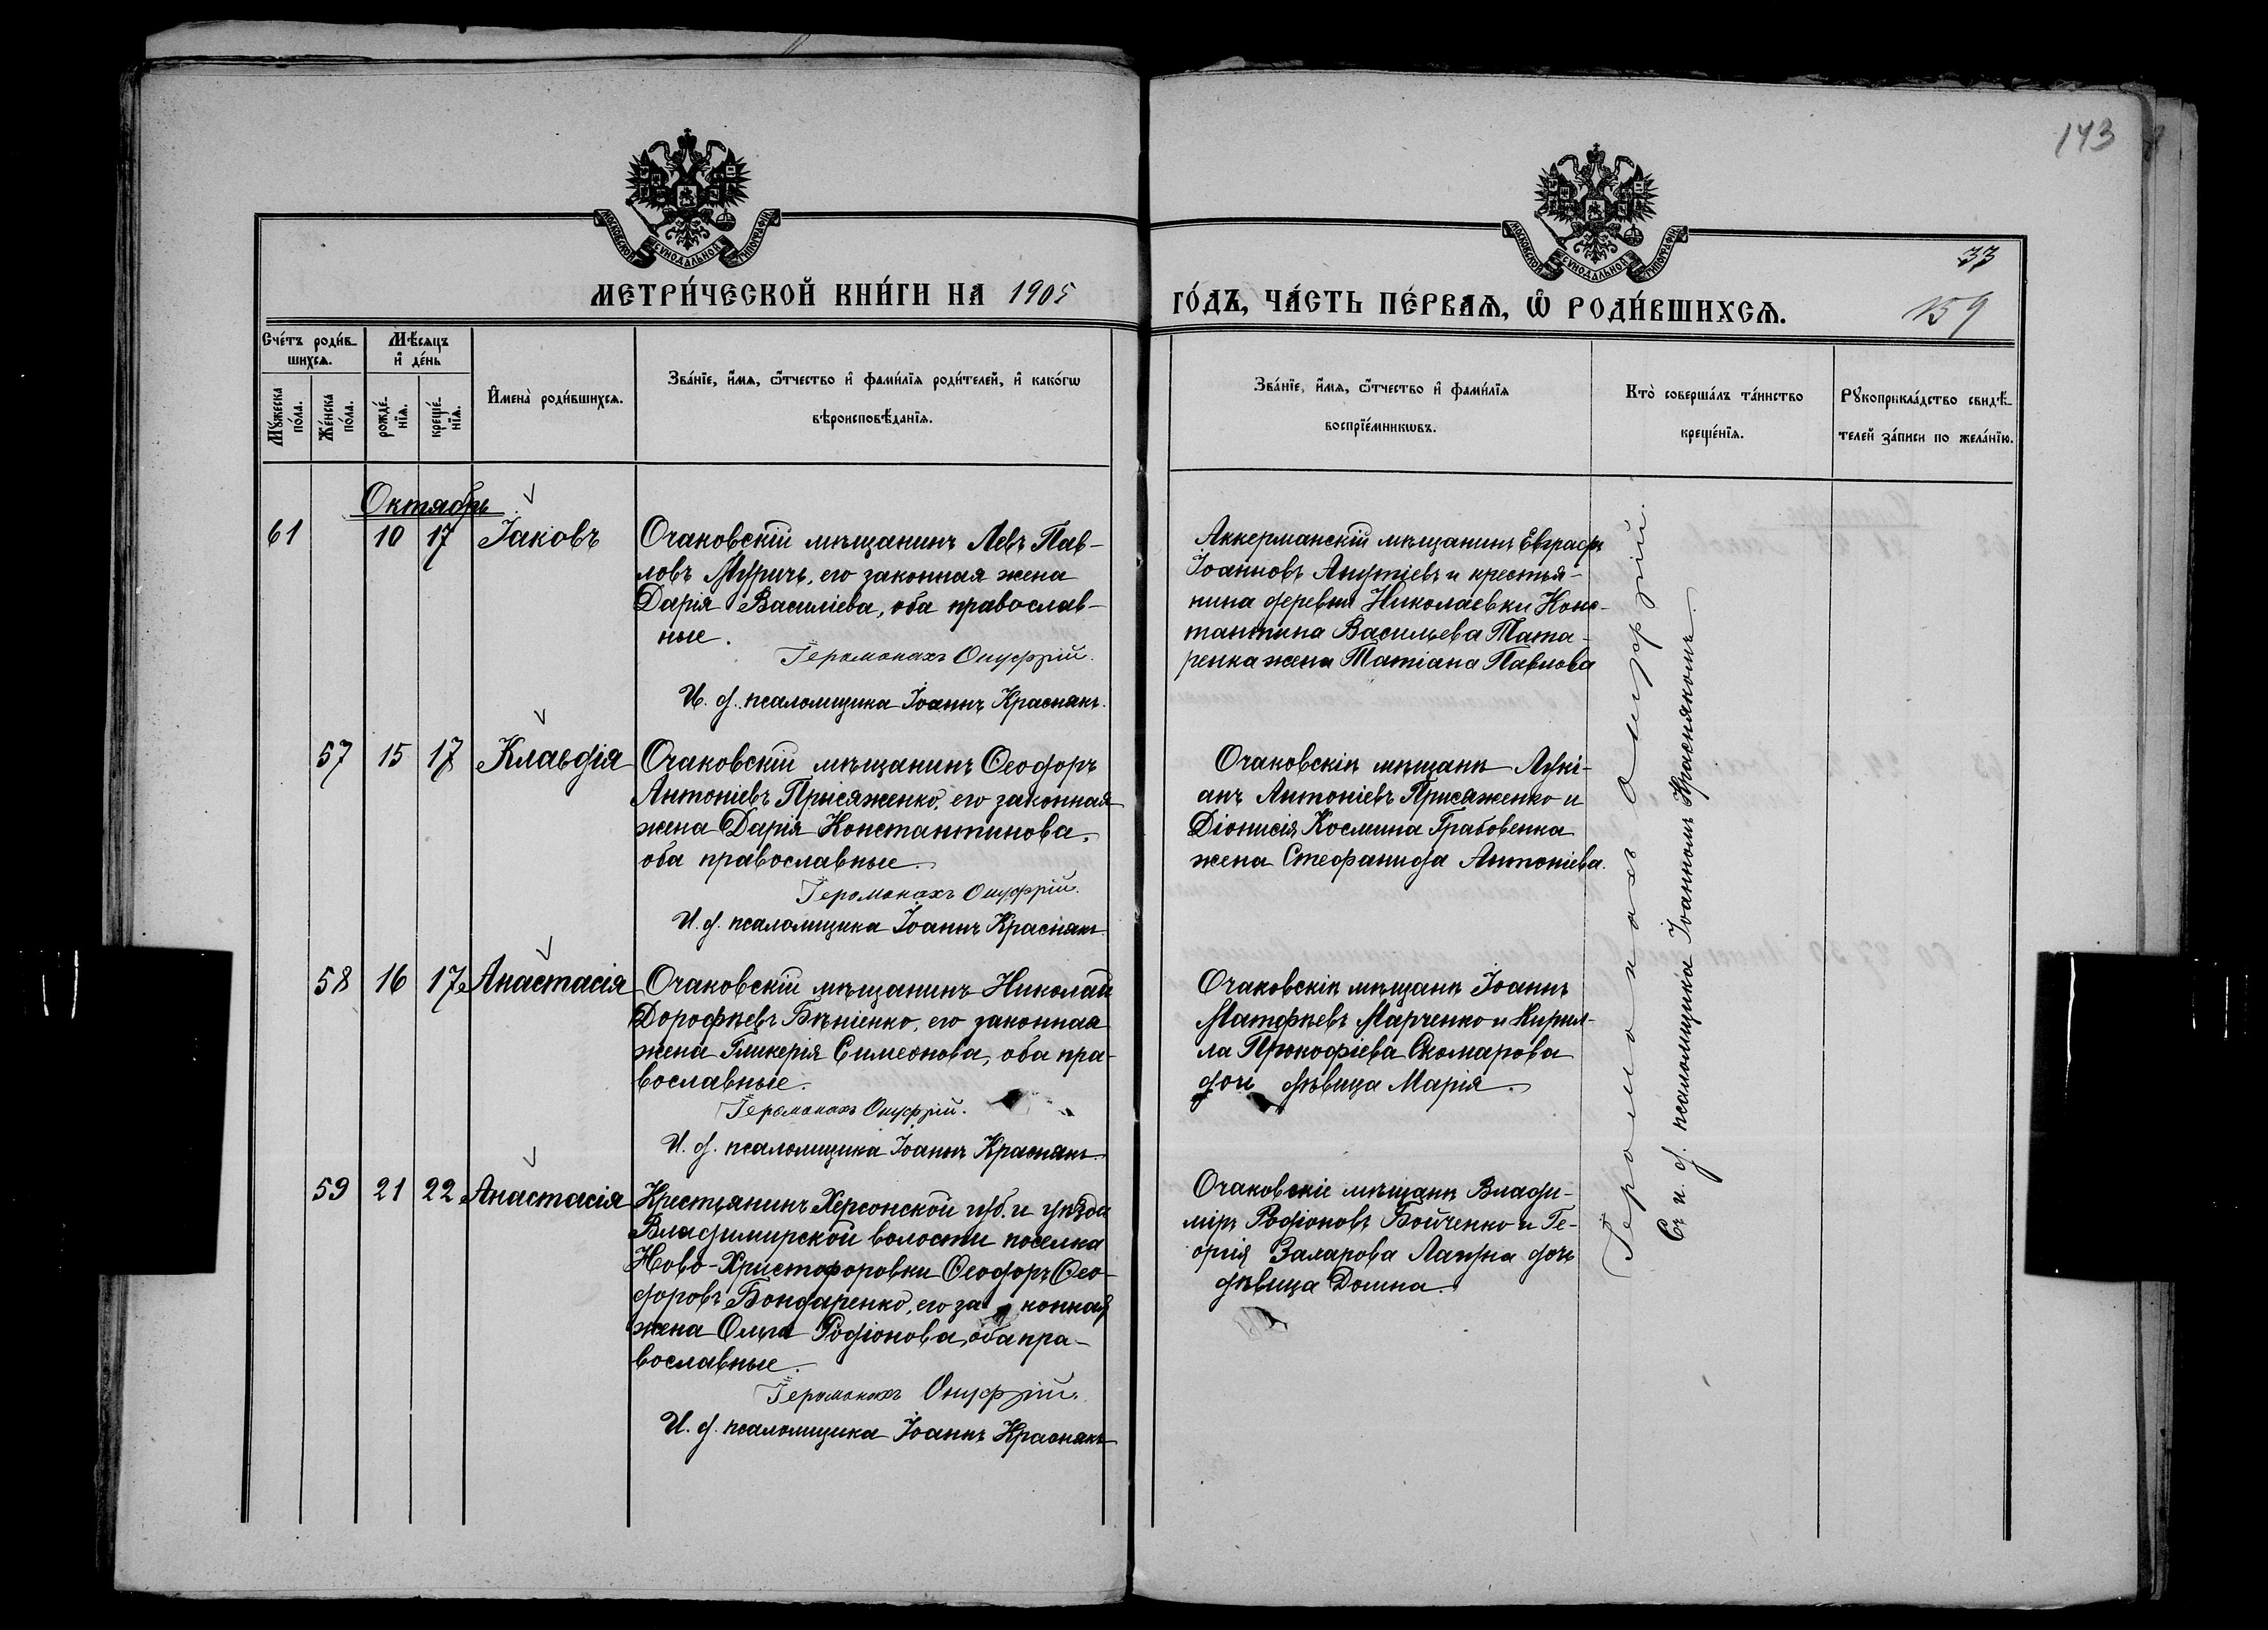 143
МОСКОВСКОЙ СѴНОДАЛЬНОЙ ТИПОГРАФІИ
МОСКОВСКОЙ СѴНОДАЛЬНОЙ ТИПОГРАФІИ
33
МЕТРИ́ЧЕСКОЙ КНИ́ГИ НА 1905
ГО́ДЪ, ЧА́СТЬ ПЕ́РВАѦ, Ѡ҆ РОДИ́ВШИХСѦ.
159
Сче́тъ роди́в-
шихсѧ.
Мꙋ́жеска по́ла.
Же́нска по́ла.
Мѣ́сѧцъ
и҆ де́нь
рожде́-
нїѧ.
креще́-
нїѧ.
И҆мена̀ роди́вшихсѧ.
Зва́нїе, и҆́мѧ, ѻ҆́тчество и҆ фами́лїѧ роди́телей, и҆ како́гѡ
вѣроисповѣ́данїѧ.
Зва́нїе, и҆́мѧ, ѻ҆́тчество и҆ фами́лїѧ
воспрїе́мникѡвъ.
Кто̀ соверша́лъ та́инство
креще́нїѧ.
Рꙋкоприкла́дство свидѣ́-
телей за́писи по жела́нїю.
Октябрь
61 10 17 Іаковъ
Очаковскій мѣщанинъ Левъ Пав-
ловъ его законная жена
Дарія Василіева, оба православ-
ные.
Іеромонахъ Онуфрій.
И. д. псаломщика Іоаннъ Краснякъ.
Аккерманскій мѣщанинъ Евграфъ
Іоанновъ и крестья-
нина деревни Николаевки Конс-
тантина Васильева Тата-
ренка жена Татіана Павлова
57 15 17 Клавдія
Очаковскій мѣщанинъ Ѳеодоръ
Антоніевъ Присяженко, его законная
жена Дарія Константинова,
оба православные.
Іеромонахъ Онуфрій.
И. д. псаломщика Іоаннъ Краснякъ.
Очаковскіе мѣщане Лукі-
анъ Антоніевъ Присяженко и
Діонисія Космина Грабовенка
жена Стефанида Антоніева.
58 16 17 Анастасія
Очаковскій мѣщанинъ Николай
Дорофѣевъ Бѣніенко, его законная
жена Гликерія Симеонова, оба пра-
вославные.
Іеромонахъ Онуфрій.
И. д. псаломщика Іоаннъ Краснякъ.
Очаковскіе мѣщане Іоаннъ
Матфѣевъ Марченко и Кирил-
ла Прокофіева Скомарова
дочь дѣвица Марія.
59 21 22 Анастасія
Крестьянинъ Херсонской губ. и уѣзда
Владимирской волости поселка
Ново-Христофоровки Ѳеодоръ Ѳео-
доровъ Бондаренко, его законная
жена Ольга Родіонова, оба пра-
вославные.
Іеромонахъ Онуфрій.
И. д. псаломщика Іоаннъ Краснякъ
Очаковскіе мѣщане Влади-
міръ Родіоновъ Бойченко и Ге-
оргія Захарова дочь
дѣвица Домна.
Іеромонахъ Онуфрій.
Съ и. д. псаломщика Іоанномъ Краснякомъ.